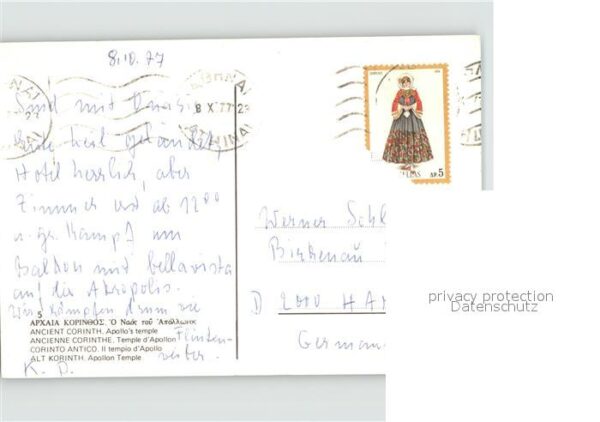 8.10.77
Sind mit
heil gelandet,
Hotel herrlich, aber
Zimmer erst ab 12 00
u. gr. Kampf um
Balkon mit bellavista
auf die Akropolis.
Wir kämpfen drum wie
Flinten-
weiber.
K. D.
5
ΑΡΧΑΙΑ ΚΟΡΙΝΘΟΣ. Ὁ Ναὸς τοῦ Ἀπόλλωνος
ANCIENT CORINTH. Apollo's temple
ANCIENNE CORINTHE. Temple d'Apollon
CORINTO ANTICO. Il tempio d'Apollo
ALT KORINTH. Apollon Temple
8 X 77
ΔΡ. 5
Werner Schl
Birkenau
D 2000 HA
German
privacy protection
Datenschutz